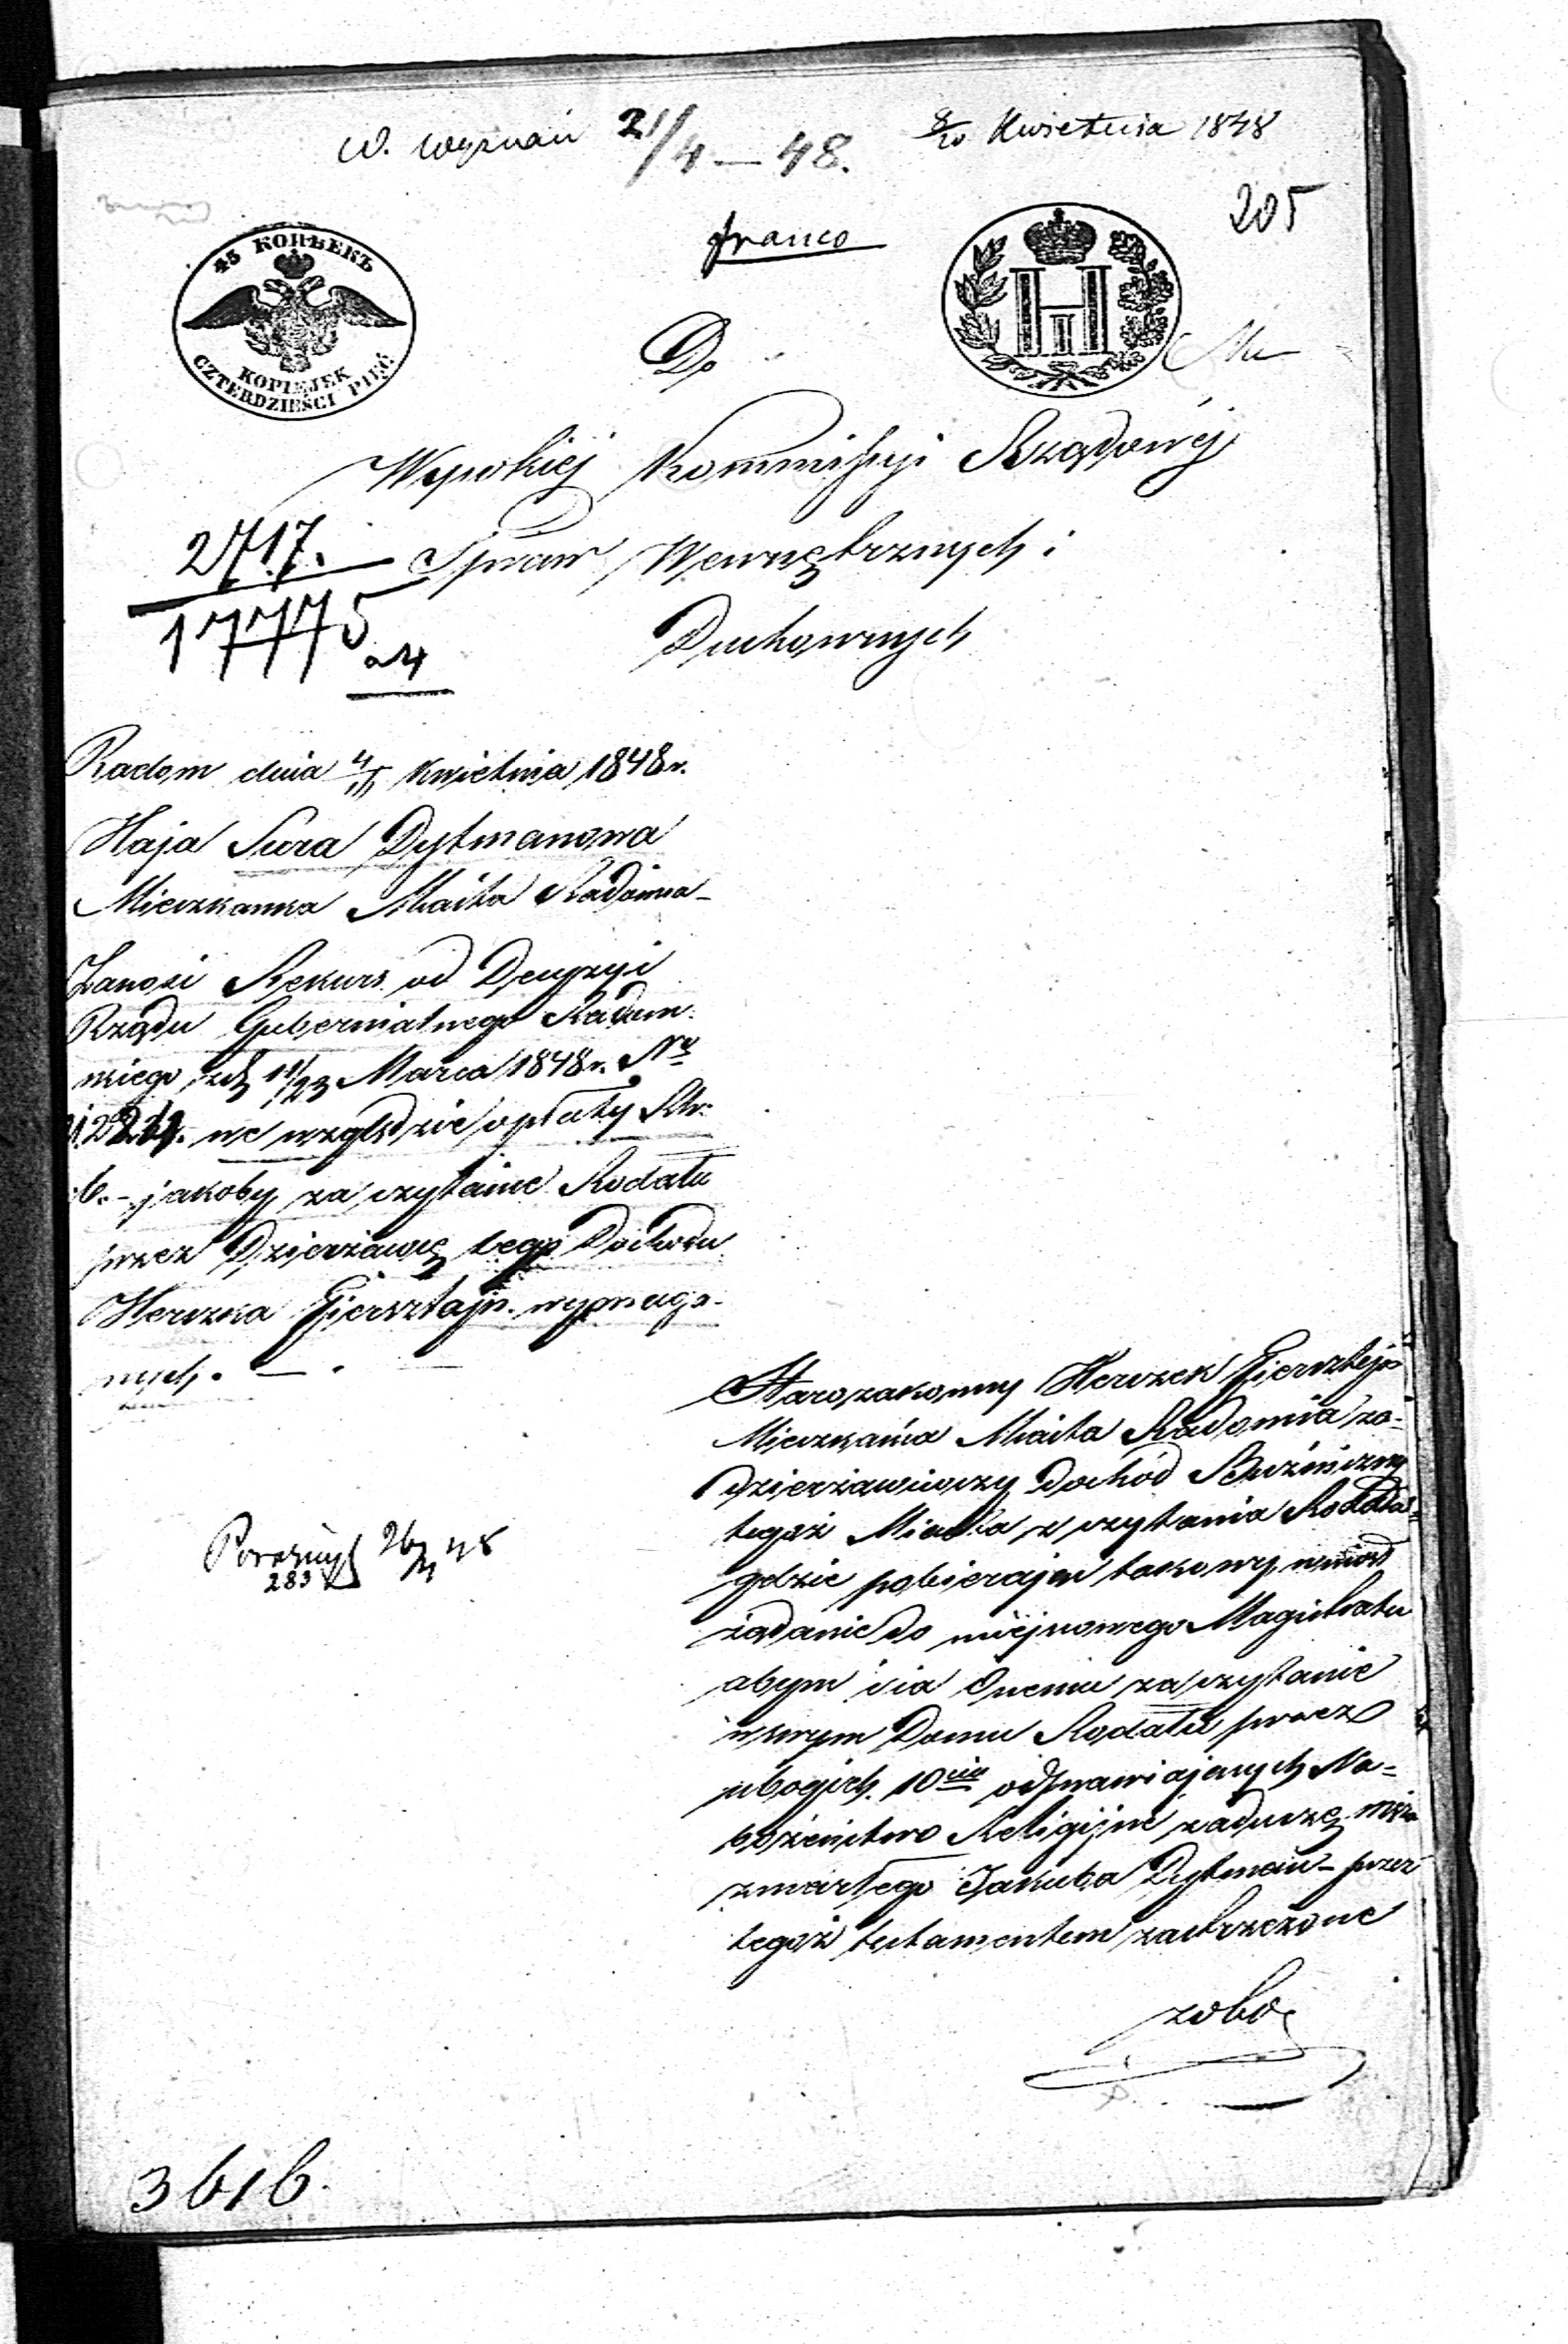 W. Wyznań 21/4 – 48.
8/20 Kwietnia 1848
205
franco
45 КОПѢЕКЪ
KOPIEJEK
CZTERDZIEŚCI PIĘĆ
H
III
Do
Wysokiéj Kommissyi Rządowéj
Spraw Wewnętrznych i
Duchownych
2717.
17775
Radom dnia 4/16 Kwietnia 1848 r.
Haja Sura Dytmanowa
Mieszkanka Miasta Radomia
Zanosi Rekurs od Decyzyi
Rządu Gubernialnego Radom-
skiego zd 11/23 Marca 1848 r. Nr
we względzie opłaty Rs:
6. – jakoby za czytanie Rodału
przez Dzierżawcę tego Dochodu
Herszka Giersztajn wymaga-
nych. –
Starozakonny Herszek Giersztejn
Mieszkańca Miasta Radomia za-
dzierżawiwszy Dochód Bużniczny
tegoż Miasta z czytania Rodała
gdzie pobierając takowy, wniósł
żądanie do miejscowego Magistratu
abym ja Onemu za czytanie
w swym Domu Rodału przez
ubogich 10ciu odprawiających Na-
bożeństwo Religijne za duszę męża
zmarłego Jakuba Dytman – przez
tegoż testamentem zastrzeżone
zobo
283
26/4 48
3616.